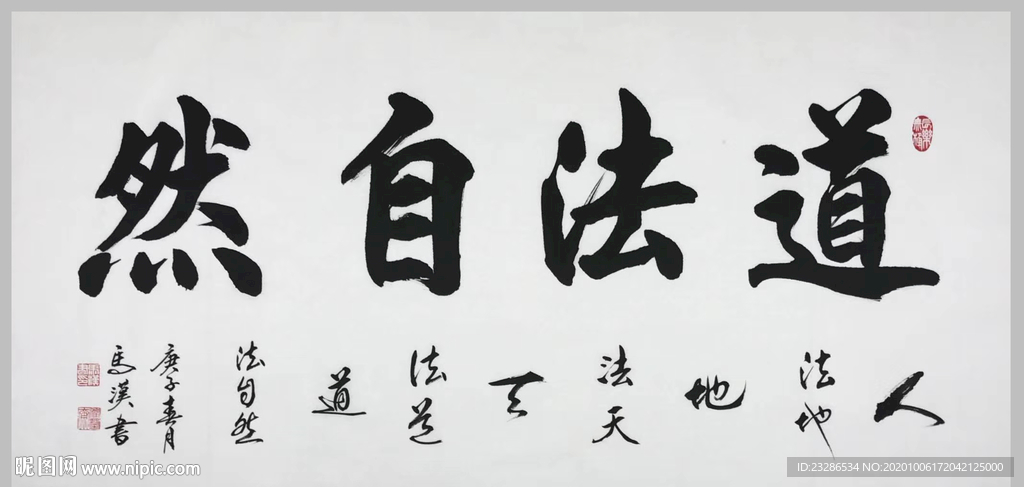 道法自然
人法地地法天天法道道法自然
庚子春月
馬漢書
昵图网 www.nipic.com
ID:23286534 NO:20201006172042125000